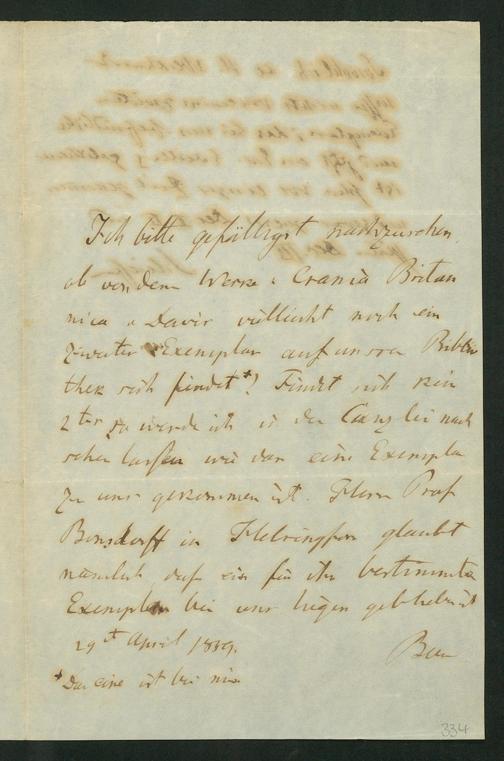 Ich bitte gefälligst nachzusehen,
ob von dem Werke "Crania Britan
nica" Davis vielleicht noch ein
zweiter Exemplar auf unsrer Biblio
thek sich findet*? Findet sich kein
2ter, so werde ich in der Canzlei nach
sehen lassen wie das eine Exemplar
zu uns gekommen ist. Herr Prof
Bonsdorff in Helsingfors glaubt
nämlich daß ein für ihn bestimmtes
Exemplar bei uns liegen geblieben ist
29st April 1859.
Baer
* Das eine ist bei mir
334